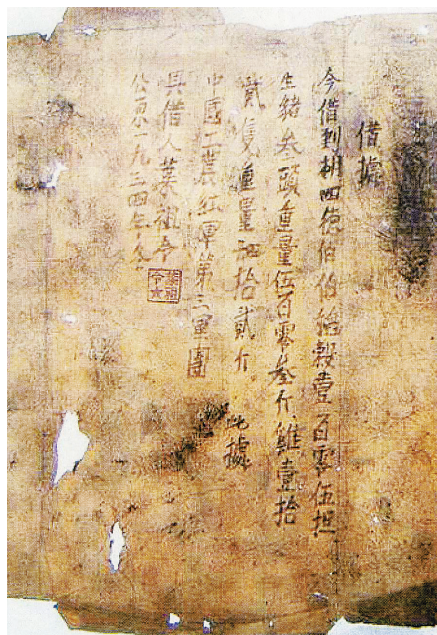 借據
今借到胡四德伯伯稻穀壹百零伍担
生豬叁頭重量伍百零叁斤,雞壹拾
貳隻重量肆拾貳斤。此據
中國工農紅軍第三軍團
具借人葉祖令
葉祖令
公原一九三四年冬